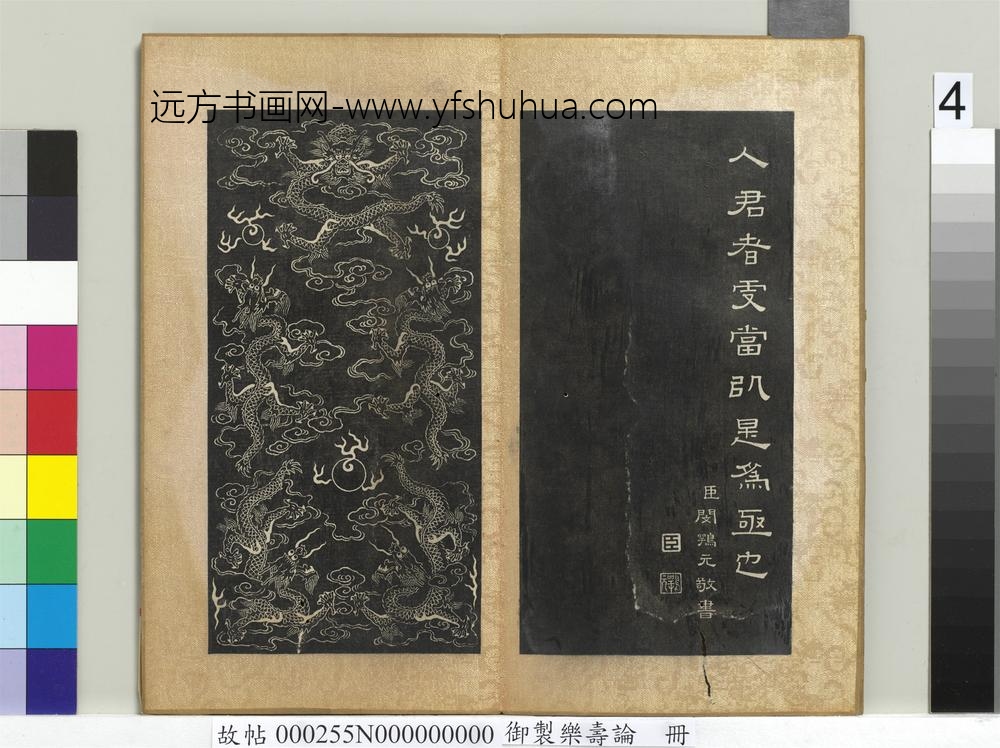 远方书画网-www.yfshuhua.com
4
人君者當㕥是爲亟也
臣閔鶚元敬書
臣
故帖 000255N000000000 御製樂壽論 冊